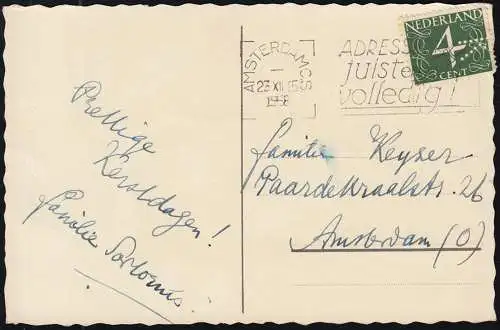 Prettige
Kerstdagen!
familie Sartorius
AMSTERDAM CS
23 XII
1958
ADRESS
juist e
volledig!
NEDERLAND
4
CENT
familie Keyser
Paardekraalstr. 26
Amsterdam (O)